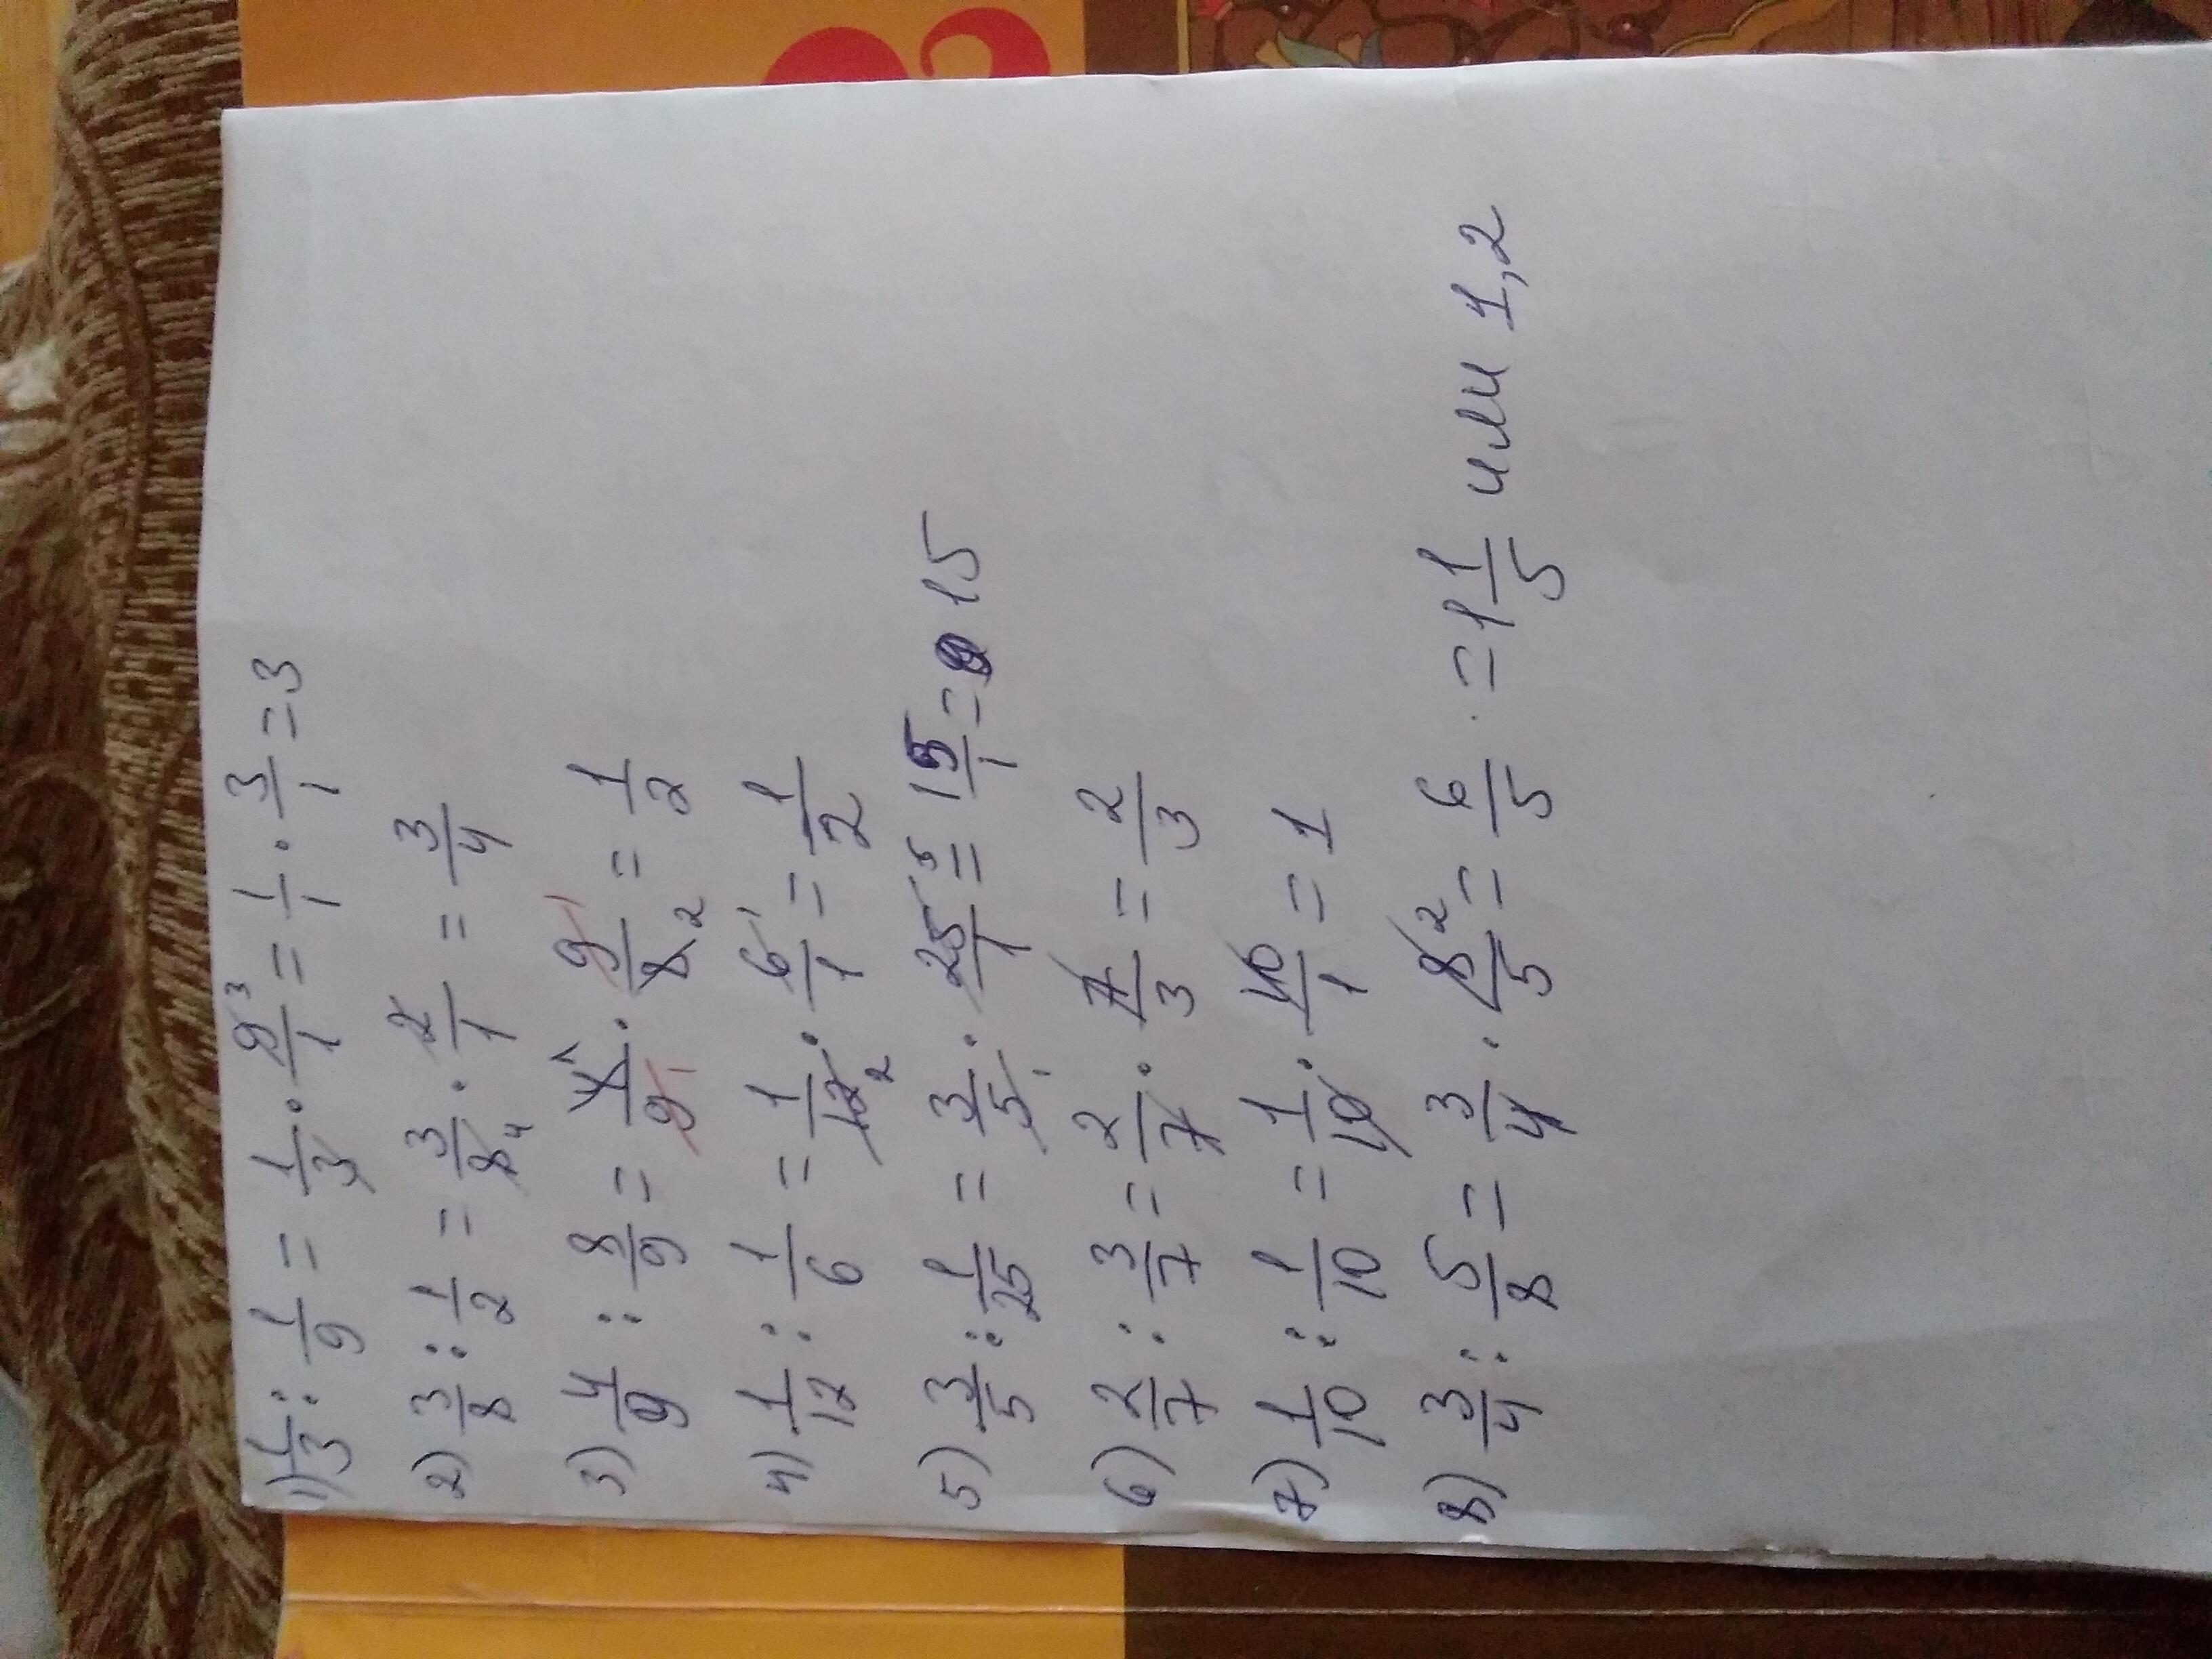 1) 1/3 : 1/9 = 1/3 · 9/1 3 = 1/1 · 3/1 = 3
2) 3/8 : 1/2 = 3/8 4 · 2/1 = 3/4
3) 4/9 : 8/9 = 4 1/9 1 · 9 1/8 2 = 1/2
4) 1/12 : 1/6 = 1/12 2 · 6 1/1 = 1/2
5) 3/5 : 1/25 = 3/5 1 · 25 5/1 = 15/1 = 15
6) 2/7 : 3/7 = 2/7 · 7/3 = 2/3
7) 1/10 : 1/10 = 1/10 · 10/1 = 1
8) 3/4 : 5/8 = 3/4 · 8 2/5 = 6/5 = 1 1/5 или 1,2